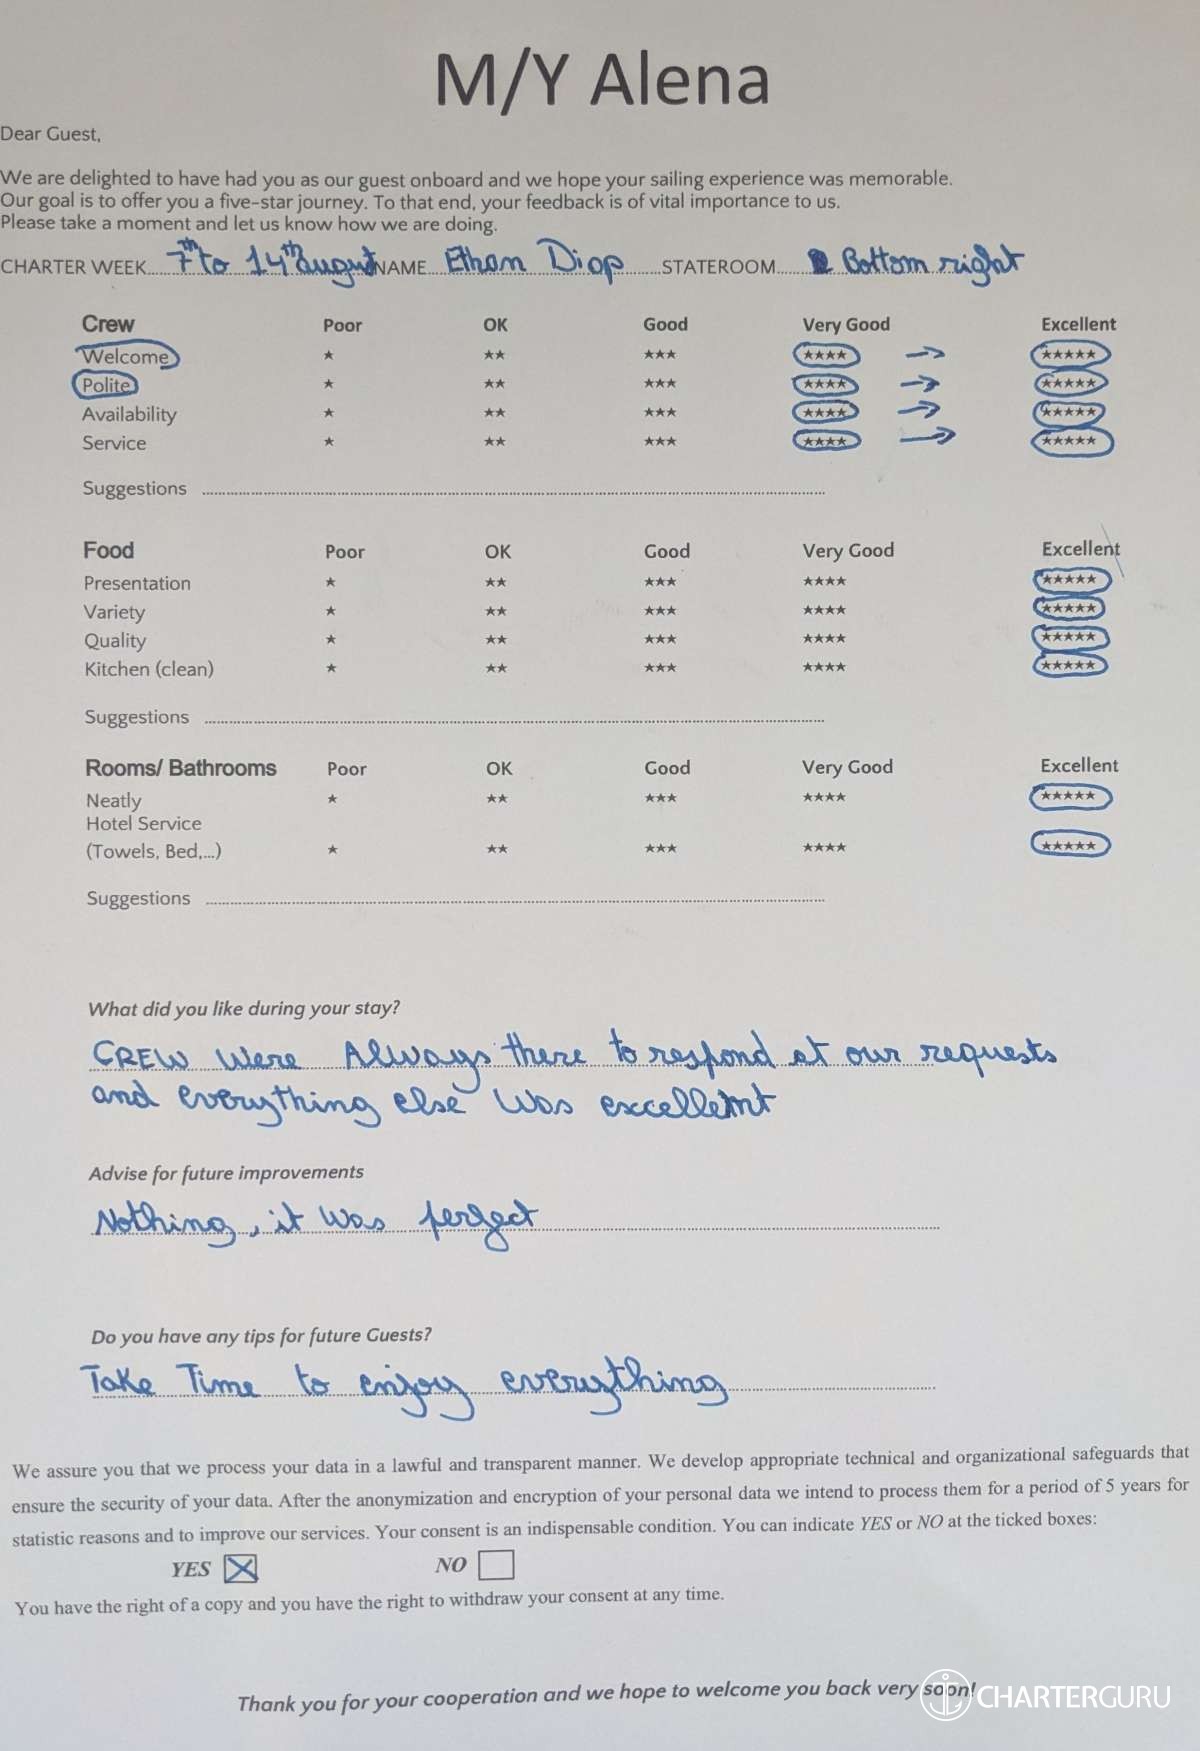 M/Y Alena
Dear Guest,
We are delighted to have had you as our guest onboard and we hope your sailing experience was memorable.
Our goal is to offer you a five-star journey. To that end, your feedback is of vital importance to us.
Please take a moment and let us know how we are doing.
CHARTER WEEK 7th to 14th august NAME Ethan Diop STATEROOM Bottom right
Crew Poor OK Good Very Good Excellent
Welcome ★ ★★ ★★★ ★★★★ → ★★★★★
Polite ★ ★★ ★★★ ★★★★ → ★★★★★
Availability ★ ★★ ★★★ ★★★★ → ★★★★★
Service ★ ★★ ★★★ ★★★★ → ★★★★★
Suggestions
Food Poor OK Good Very Good Excellent
Presentation ★ ★★ ★★★ ★★★★ ★★★★★
Variety ★ ★★ ★★★ ★★★★ ★★★★★
Quality ★ ★★ ★★★ ★★★★ ★★★★★
Kitchen (clean) ★ ★★ ★★★ ★★★★ ★★★★★
Suggestions
Rooms/ Bathrooms Poor OK Good Very Good Excellent
Neatly ★ ★★ ★★★ ★★★★ ★★★★★
Hotel Service
(Towels, Bed,...) ★ ★★ ★★★ ★★★★ ★★★★★
Suggestions
What did you like during your stay?
CREW Were Always there to respond at our requests
and everything else Was excellent
Advise for future improvements
Nothing, it Was perfect
Do you have any tips for future Guests?
Take Time to enjoy everything
We assure you that we process your data in a lawful and transparent manner. We develop appropriate technical and organizational safeguards that
ensure the security of your data. After the anonymization and encryption of your personal data we intend to process them for a period of 5 years for
statistic reasons and to improve our services. Your consent is an indispensable condition. You can indicate YES or NO at the ticked boxes:
YES ☒ NO ☐
You have the right of a copy and you have the right to withdraw your consent at any time.
Thank you for your cooperation and we hope to welcome you back very soon!
CHARTERGURU